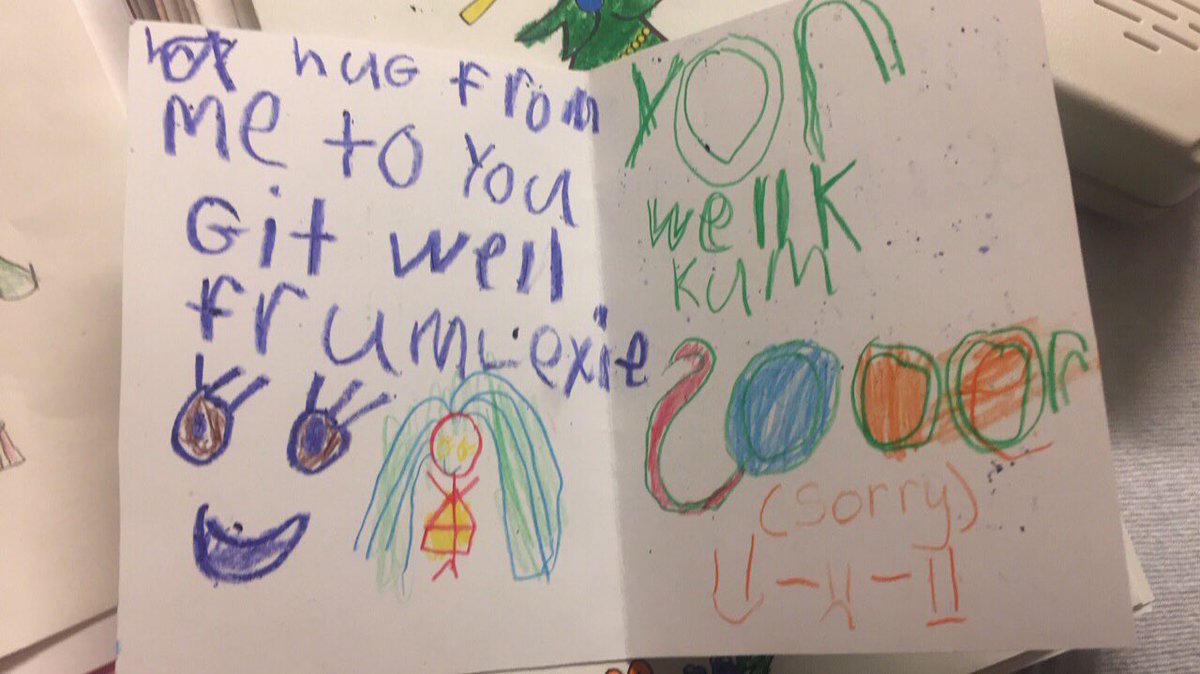 hug from
me to You
Git well
frum Lexie
Yor
wellk
kum
Sooor
(sorry)